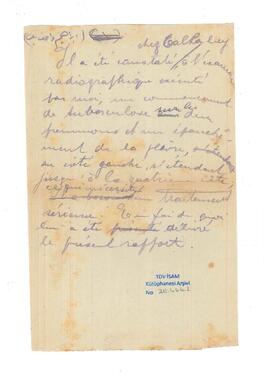 Il a été constaté à l'examen
radiographique exécuté
par moi, un commencement
de tuberculose sur les deux
poumons et un épanche-
ment de la plèvre,
au côté gauche, s'étendant
jusqu'à la quatrième côte,
ce qui nécessite
traitement
sérieuse. En foi de quoi
lui a été délivré
le présent rapport.
TDV İSAM
Kütüphanesi Arşivi
No